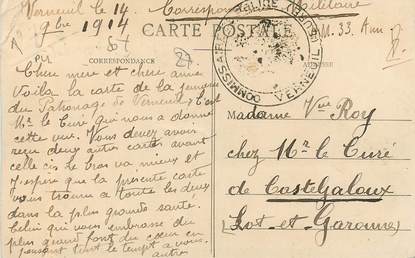 Verneuil le 14
9bre 1914
Correspondance Militaire
CARTE POSTALE
M. 33.
CORRESPONDANCE
ADRESSE
27
COMMISSAIRE
VERNEUIL
Chère mère et chère
Voila la carte de la
du Patronage de Verneuil c'est
Mr le Curé qui nous a donné
cette vue. Vous devez avoir
reçu deux autres cartes avant
celle ci. Le bras va mieux et
J'espère que la présente carte
vous trouve a toute les deux
dans la plus grande santé.
Celui qui vous embrasse du
plus grand fond du cœur en
pensant tout le tempt a vous
autres
Madame Vve Roy
chez Mr le Curé
de Casteljaloux
(Lot-et-Garonne)